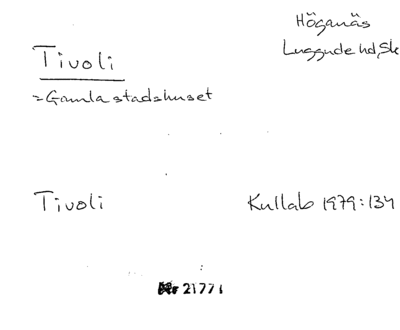 Höganäs
Luggude hd, Sk
Tivoli
= Gamla stadshuset
Tivoli Kullab 1979:134
21771